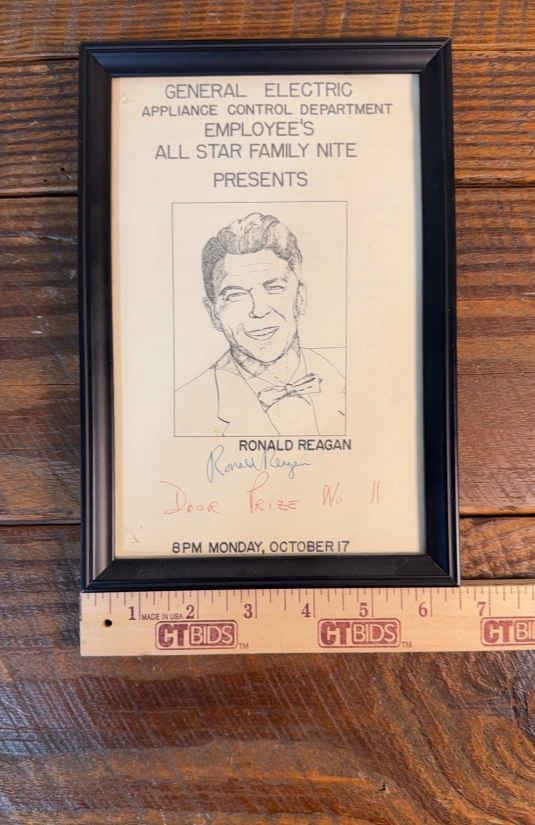 GENERAL ELECTRIC
APPLIANCE CONTROL DEPARTMENT
EMPLOYEE'S
ALL STAR FAMILY NITE
PRESENTS
RONALD REAGAN
Ronald Reagan
Door Prize No 11
8PM MONDAY, OCTOBER 17
1 MADE IN USA 2 3 4 5 6 7
CTBIDS TM CTBIDS TM CTBI